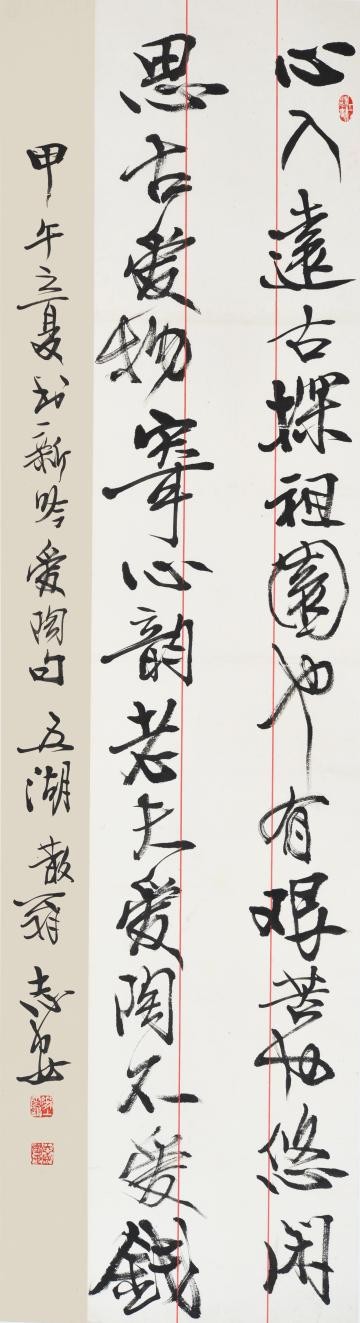 心入遠古探祖園也有艰苦也悠闲
思古爱物牽心韵老夫爱陶不爱錢
甲午立夏书新吟爱陶句 五湖散翁志